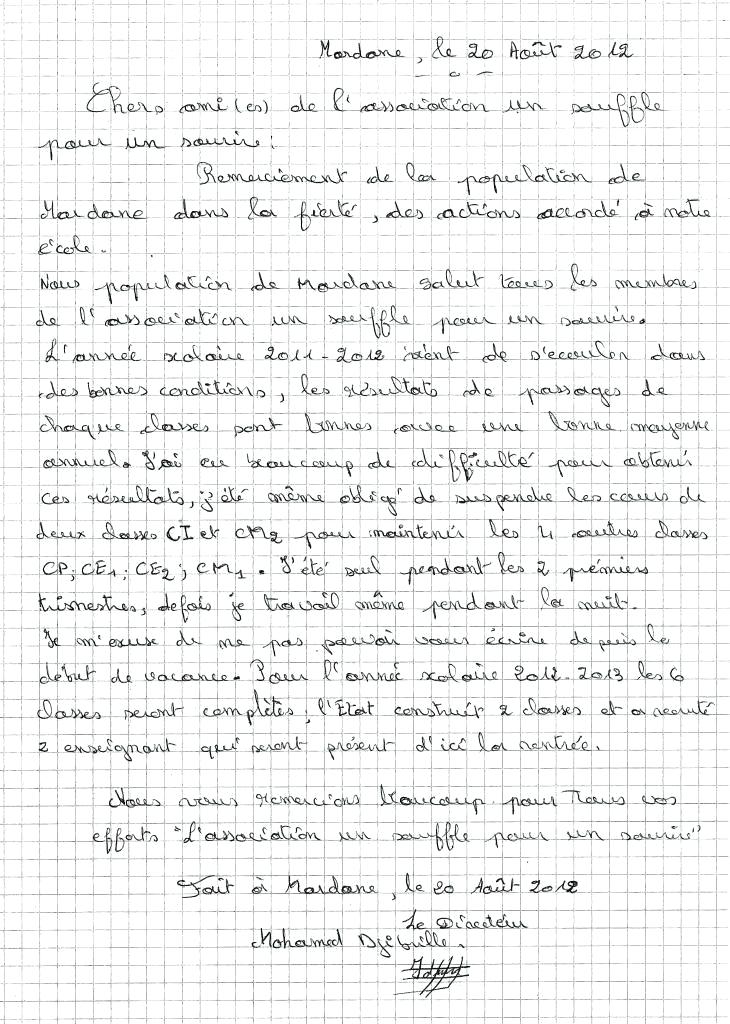 Mardane, le 20 Août 2012
Chers ami(es) de l'association un souffle
pour un sourire :
Remerciement de la population de
Mardane dans la fierté, des actions accordé à notre
école.
Nous population de Mardane salut tous les membres
de l'association un souffle pour un sourire.
L'année scolaire 2011-2012 vient de s'ecouler dans
des bonnes conditions, les résultats de passages de
chaque classes sont bonnes avec une bonne moyenne
annuel. J'ai eu beaucoup de difficulté pour obtenir
ces résultats, j'été même obligé de suspendre les cours de
deux classes CI et CM2 pour maintenir les 4 autres classes
CP; CE1; CE2; CM1. J'été seul pendant les 2 prémiers
trismestres, defois je travail même pendant la nuit.
Je m'exuse de ne pas pouvoir vous écrire depuis le
début de vacance. Pour l'année scolaire 2012-2013 les 6
classes seront complètes, l'Etat construit 2 classes et a recruté
2 enseignant qui seront présent d'ici la rentrée.
Nous vous remercions beaucoup pour Tous vos
efforts "L'association un souffle pour un sourire"
Fait à Mardane, le 20 Août 2012
Le Directeur
Mohamed Djibrille.